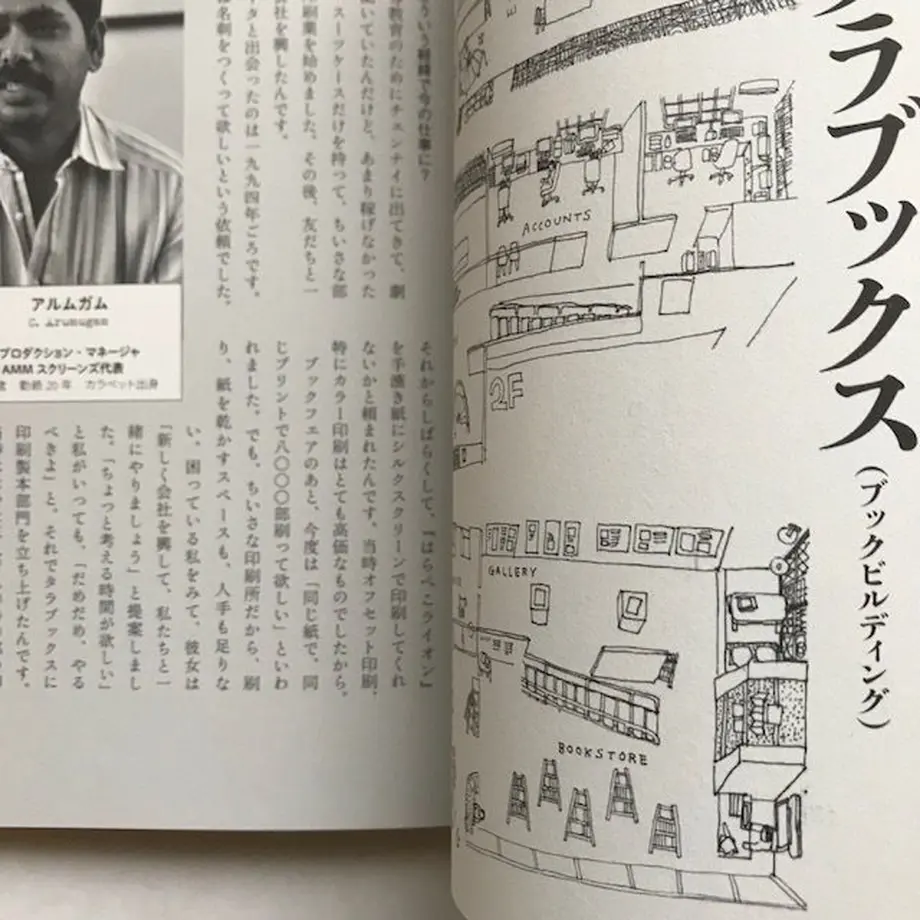 ういう経緯で今の仕事に?
教育のためにチェンナイに出てきて、劇
いていたんだけど、あまり稼げなかった
スーツケースだけを持って、ちいさな部
刷業を始めました。その後、友だちと一
会社を興したんです。
タと出会ったのは一九九四年ごろです。
名刺をつくって欲しいという依頼でした。
アルムガム
C. Arumugam
プロダクション・マネージャ
AMM スクリーンズ代表
勤続20年 カラベット出身
それからしばらくして、『はらぺこライオン』
を手漉き紙にシルクスクリーンで印刷してくれ
ないかと頼まれたんです。当時オフセット印刷、
特にカラー印刷はとても高価なものでしたから。
ブックフェアのあと、今度は「同じ紙で、同
じプリントで八〇〇〇部刷って欲しい」といわ
れました。でも、ちいさな印刷所だから、刷
り、紙を乾かすスペースも、人手も足りな
い。困っている私をみて、彼女は
「新しく会社を興して、私たちと一
緒にやりましょう」と提案しまし
た。「ちょっと考える時間が欲しい」
と私がいっても、「だめだめ、やる
べきよ」と。それでタラブックスに
印刷製本部門を立ち上げたんです。
ラブックス
(ブックビルディング)
ACCOUNTS
2F
GALLERY
BOOKSTORE